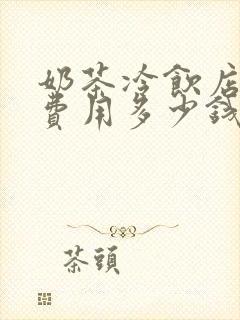 奶茶冷飲店
費用多少錢
茶頭